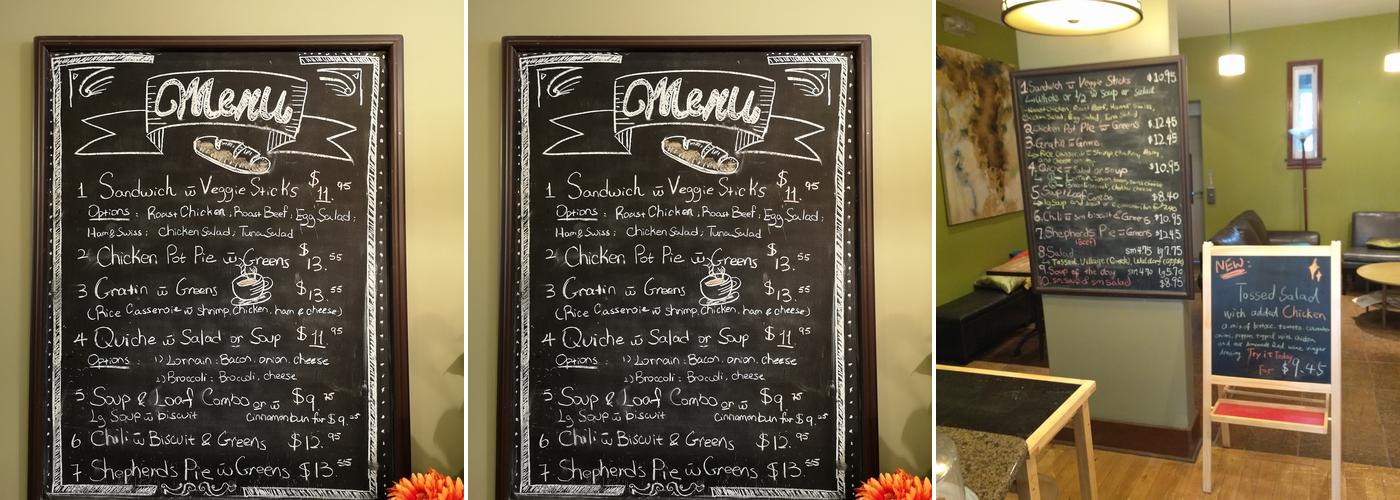 Menu
1 Sandwich w̄ Veggie Sticks $11.95
Options: Roast Chicken; Roast Beef; Egg Salad;
Ham & Swiss; Chicken Salad; Tuna Salad
2 Chicken Pot Pie w̄ Greens $13.55
3 Gratin w̄ Greens $13.55
(Rice Casserole w̄ shrimp, chicken, ham & cheese)
4 Quiche w̄ Salad or Soup $11.95
Options: 1) Lorrain: Bacon, onion, cheese
2) Broccoli: Broccoli, cheese
5 Soup & Loaf Combo or w̄ $9.75
Lg Soup w̄ biscuit Cinnamon bun for $9.25
6 Chili w̄ Biscuit & Greens $12.95
7. Shepherd's Pie w̄ Greens $13.55
Menu
1 Sandwich w̄ Veggie Sticks $11.95
Options: Roast Chicken; Roast Beef; Egg Salad;
Ham & Swiss; Chicken Salad; Tuna Salad
2 Chicken Pot Pie w̄ Greens $13.55
3 Gratin w̄ Greens $13.55
(Rice Casserole w̄ shrimp, chicken, ham & cheese)
4 Quiche w̄ Salad or Soup $11.95
Options: 1) Lorrain: Bacon, onion, cheese
2) Broccoli: Broccoli, cheese
5 Soup & Loaf Combo or w̄ $9.75
Lg Soup w̄ biscuit Cinnamon bun for $9.25
6 Chili w̄ Biscuit & Greens $12.95
7. Shepherd's Pie w̄ Greens $13.55
1 Sandwich w̄ Veggie Sticks $10.95
Whole or 1/2 w̄ Soup or Salad
Chicken Salad, Egg Salad, Tuna Salad
2. Chicken Pot Pie w̄ Greens $12.45
3. $12.45
4. Salad or Soup $10.95
5. Soup & Loaf Combo $8.40
6. Chili w̄ sm biscuit & Greens $10.95
7. Shepherds Pie w̄ Greens $12.45
(Beef)
8 Salad sm 4.75 lg 7.75
Tossed, Village (Greek), Waldorf
9. Soup of the day sm 4.70 lg 5.70
10. sm Soup & sm Salad $8.95
NEW:
Tossed Salad
with added Chicken
a mix of lettuce, tomato,
dressing. Try it Today
For $9.45